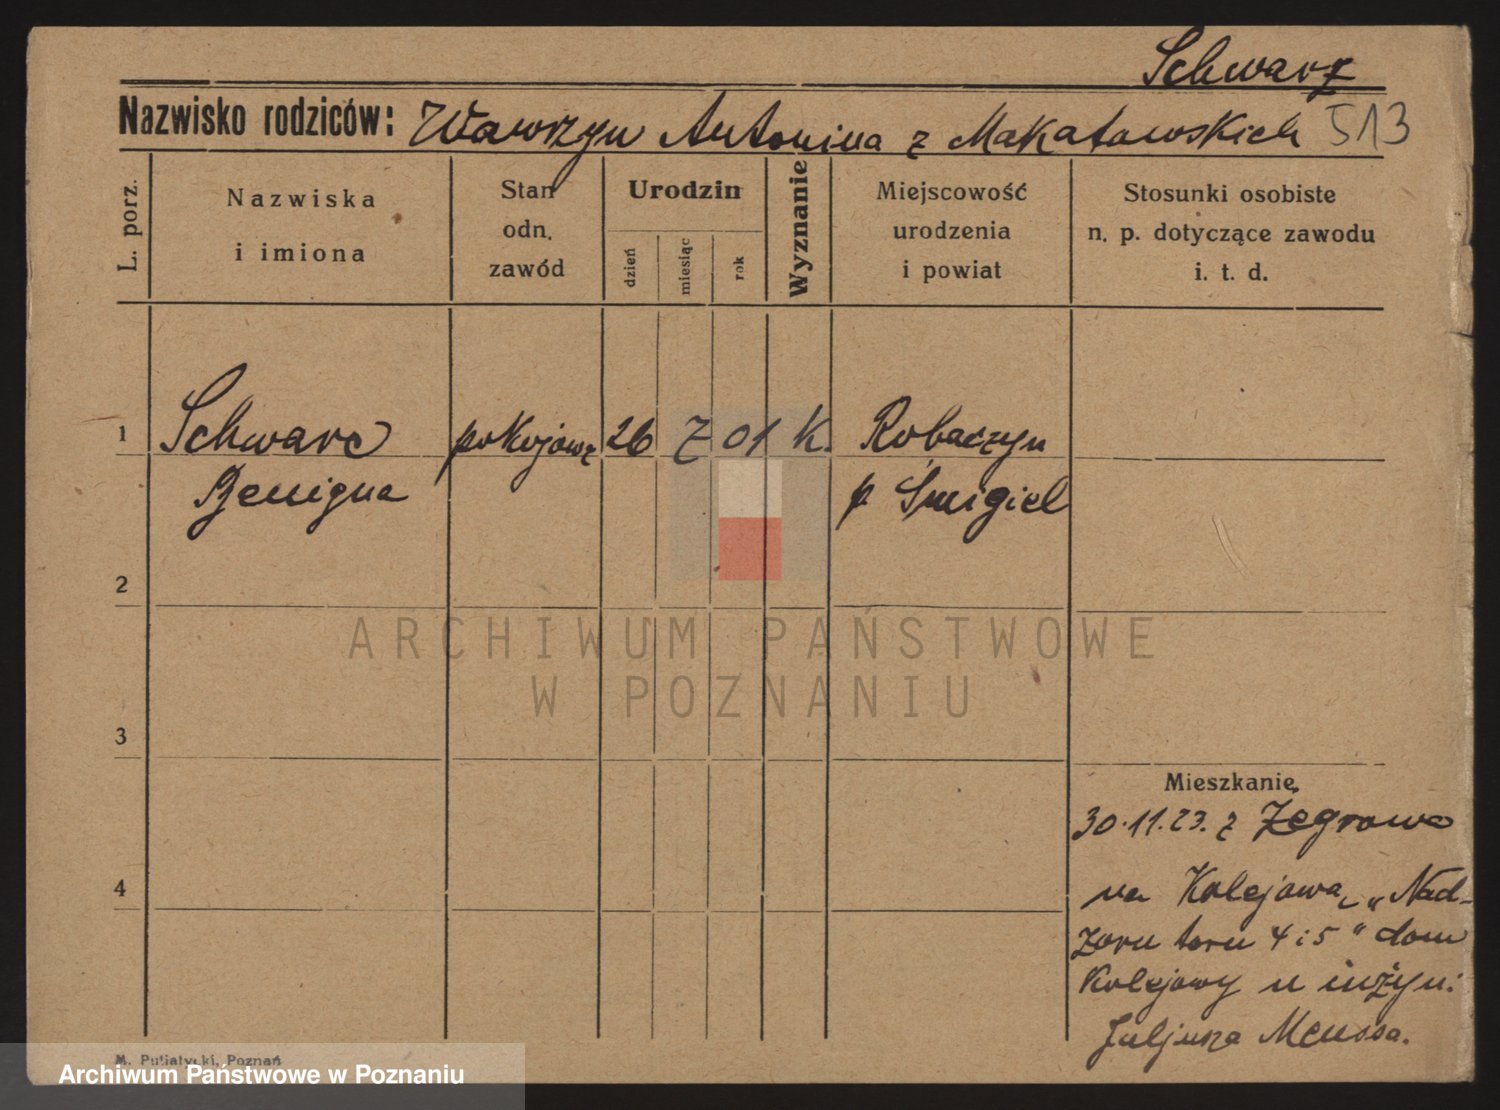 Schwarz
Nazwisko rodziców: Wawrzyn Antonina z Makatowskich 513
L. porz.
Nazwiska i imiona
Stan odn. zawód
Urodzin
dzień
miesiąc
rok
Wyznanie
Miejscowość urodzenia i powiat
Stosunki osobiste n. p. dotyczące zawodu i. t. d.
1 Schwarc pokojowa 26 Z 01 K. Robaczyn
Benigna p Śmigiel
2
ARCHIWUM PAŃSTWOWE
W POZNANIU
3
Mieszkanie
30.11.23. z Zegrowa
4
na Kolejową „Nad-
zoru toru 4 i 5" dom
Kolejowy u inżyn:
Juljusza Meussa.
M. Putiatycki, Poznań
Archiwum Państwowe w Poznaniu